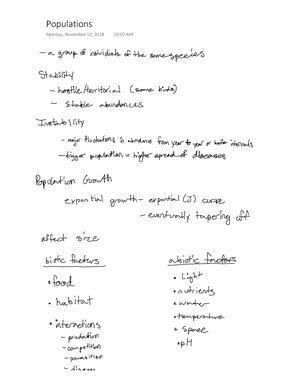 Populations
Monday, November 12, 2018 10:07 AM
- a group of individuals of the same species
Stability
- hostile/territorial (some birds)
- stable abundances
Instability
- major fluctuations in abundance from year to year or other intervals
- bigger population = higher spread of diseases
Population Growth
exponential growth - exponential (J) curve
- eventually tapering off
affect size
biotic factors
• food
• habitat
• interactions
- predation
- competition
- parasition
- disease
abiotic factors
• Light
• nutrients
• water
• temperature
• Space
• pH